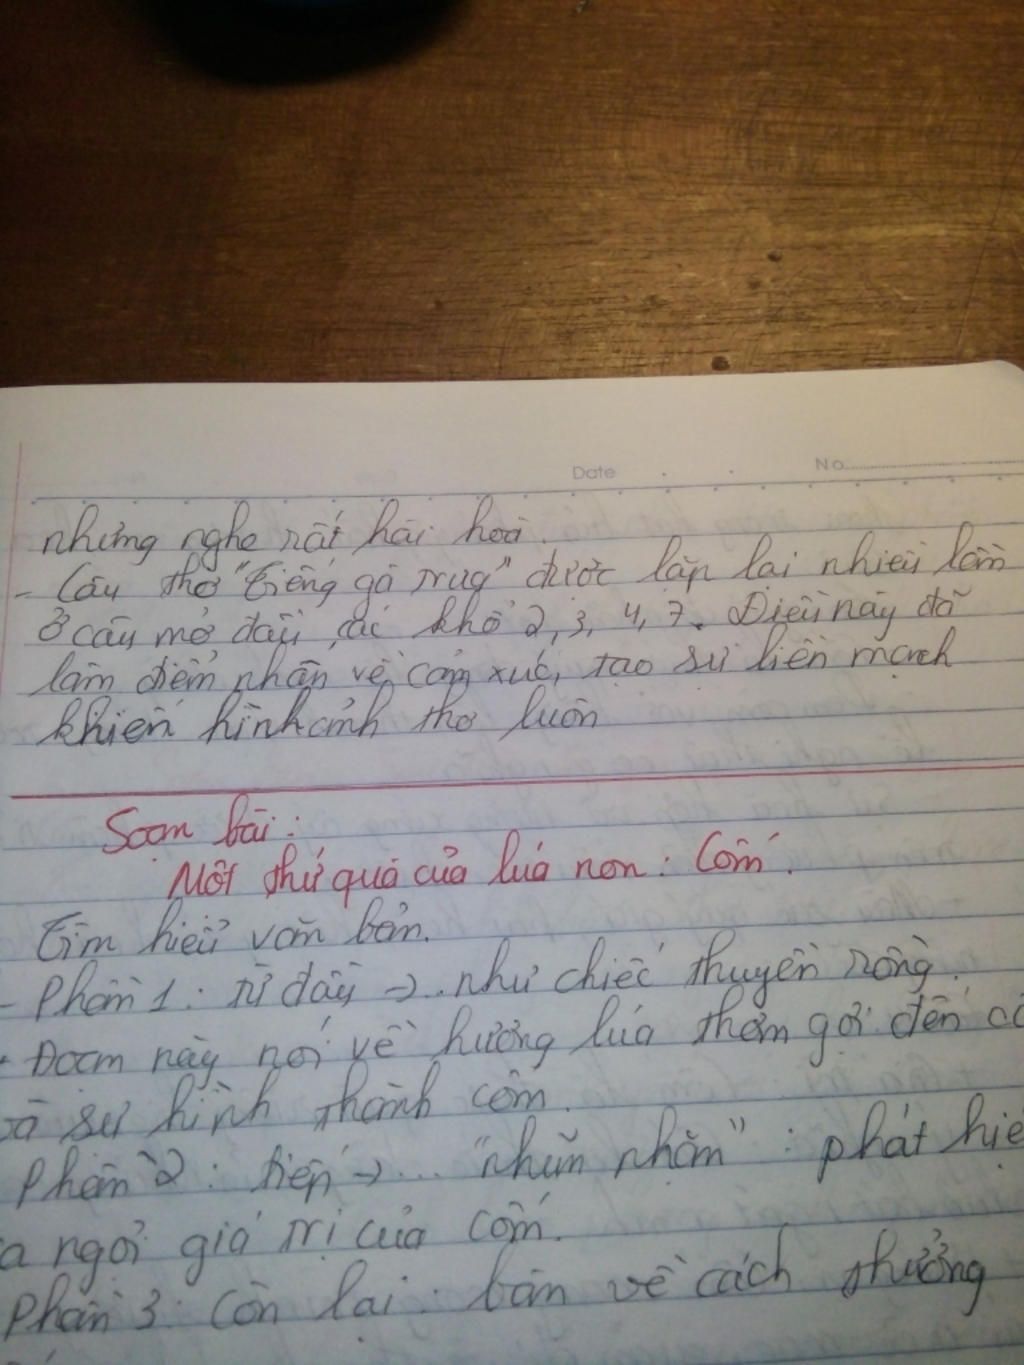 Date No
nhưng nghe rất hài hoà.
- Câu thơ "Tiếng gà trưa" được lặp lại nhiều lần
ở câu mở đầu các khổ 2, 3, 4, 7. Điều này đã
làm điểm nhấn về cảm xúc, tạo sự liền mạch
khiến hình ảnh thơ luôn
Soạn bài:
Một thứ quà của lúa non: Cốm.
Tìm hiểu văn bản.
- Phần 1: từ đầu → như chiếc thuyền rồng.
Đoạn này nói về hương lúa thơm gợi đến cố
và sự hình thành cốm.
Phần 2: tiếp → ... "nhũn nhặn": phát hiệ
a ngợi giá trị của cốm.
Phần 3: Còn lại: bàn về cách thưởng